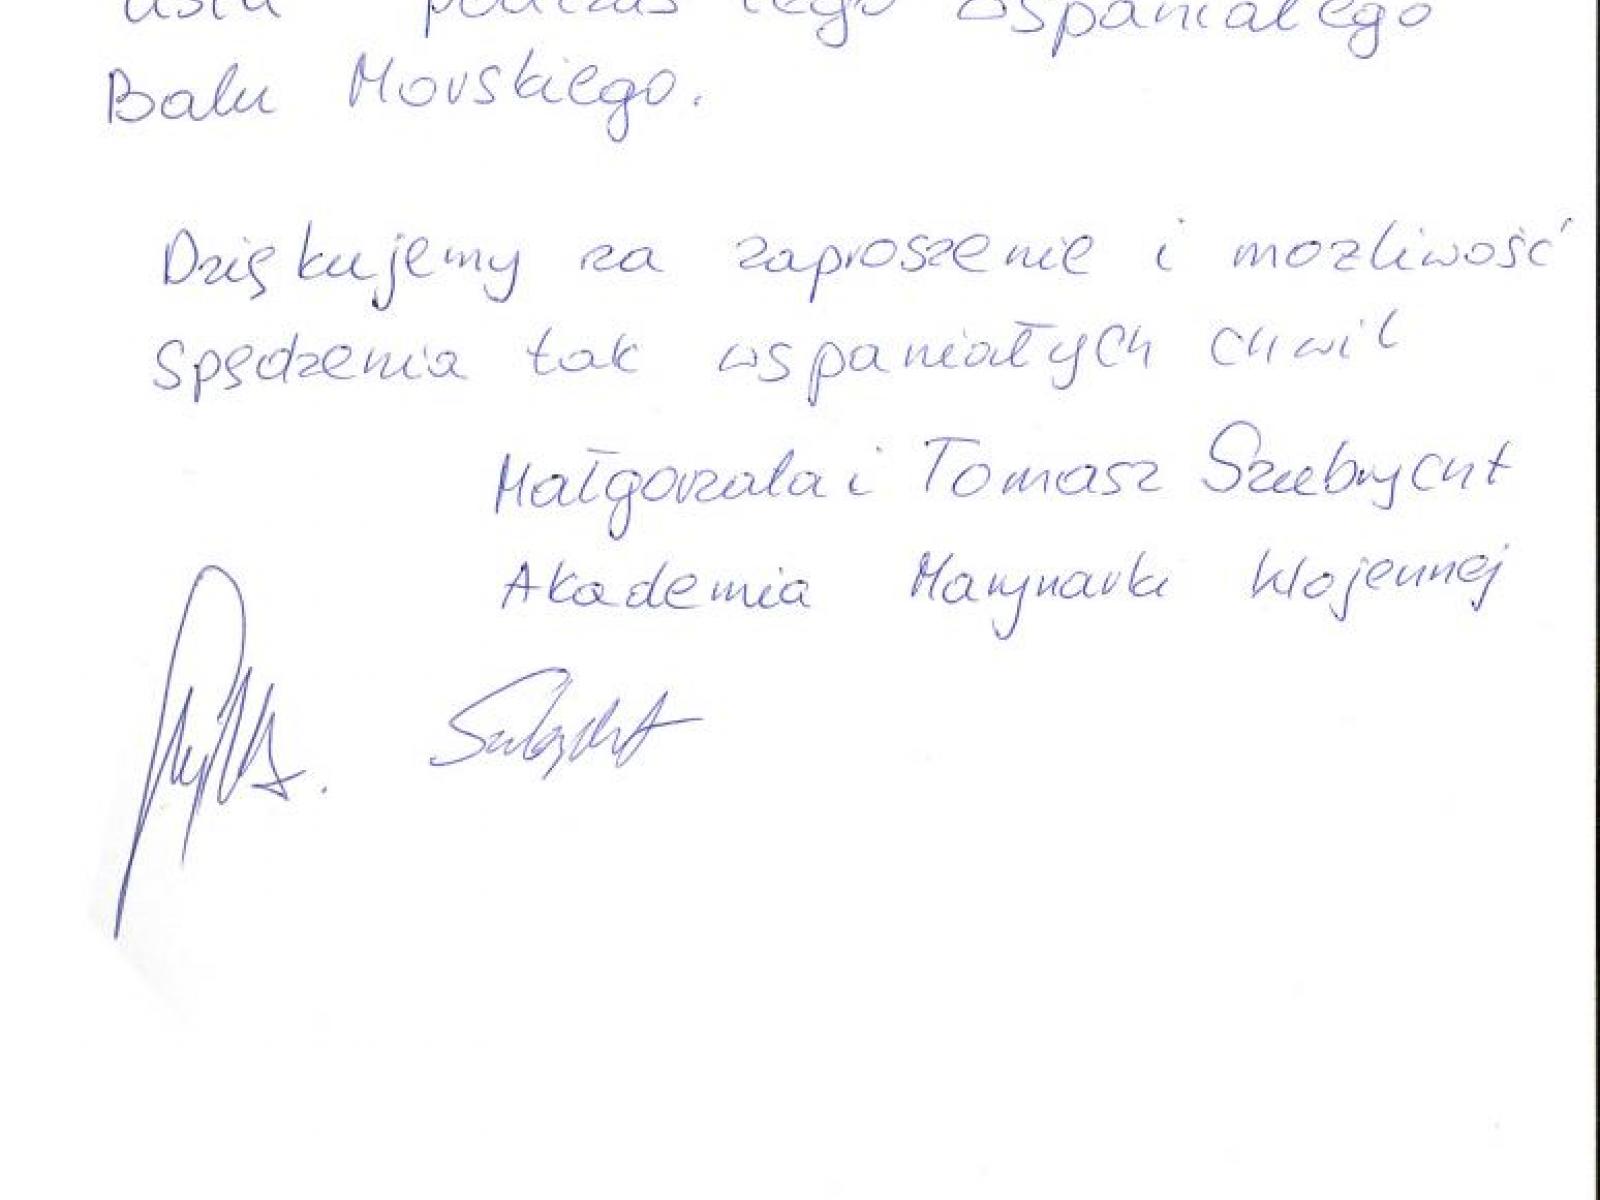 podczas tego wspaniałego
Balu Morskiego.
Dziękujemy za zaproszenie i mozliwość
spędzenia tak wspaniałych chwil
Małgorzata i Tomasz Szubrycht
Akademia Marynarki Wojennej
Szubrycht